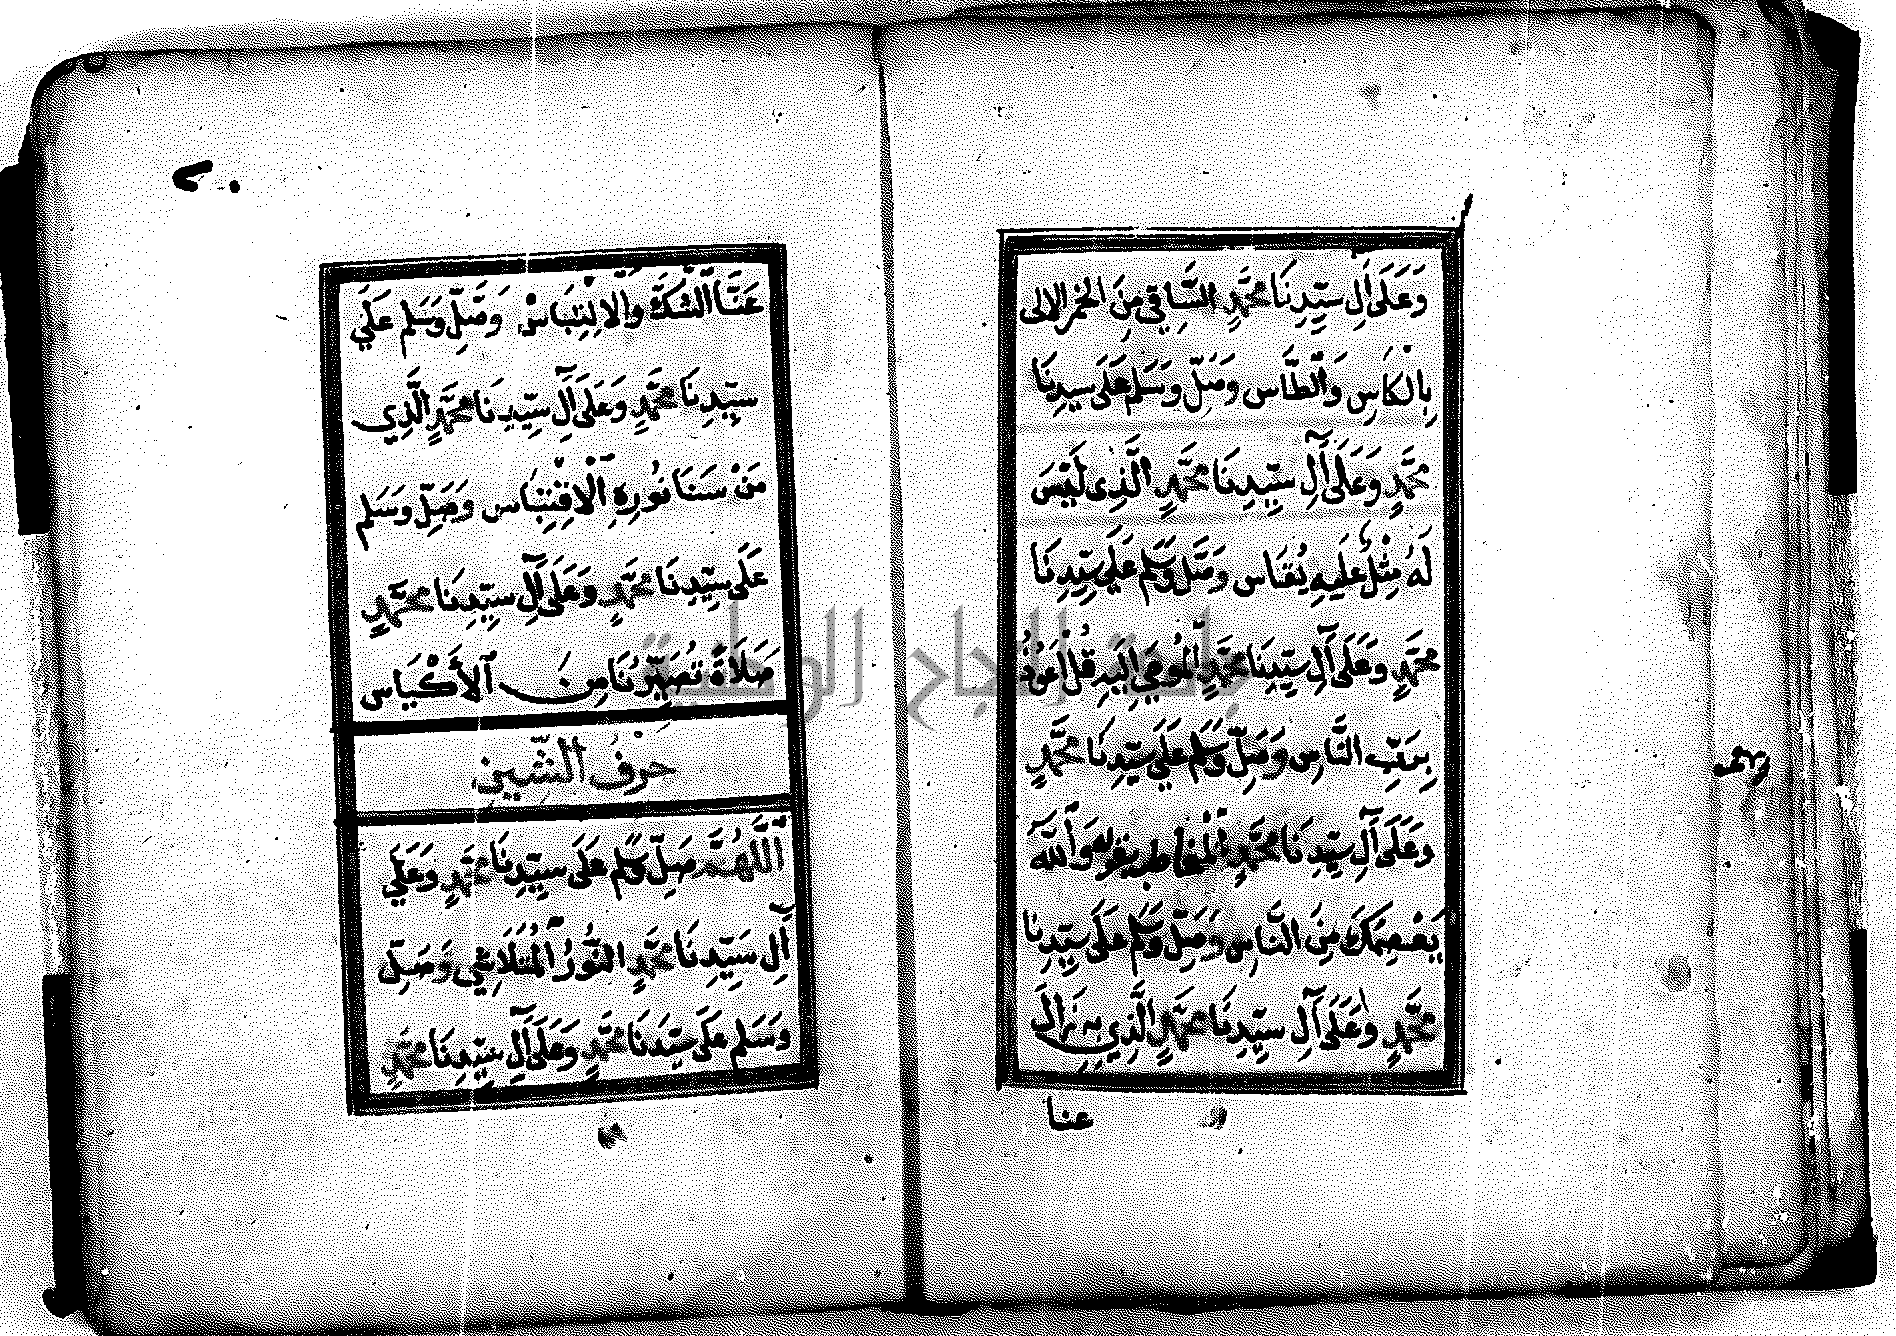 وَعَلَى آلِ سَيِّدِنَا مُحَمَّدٍ السَّاقِي مِنَ الخمر الالى
بِالْكَاسِ وَالطَّاسِ وَصَلِّ وَسَلِّمْ عَلَى سَيِّدِنَا
مُحَمَّدٍ وَعَلَى آلِ سَيِّدِنَا مُحَمَّدٍ الَّذِى لَيْسَ
لَهُ مِثْلٌ عَلَيْهِ يُقَاس وَصَلِّ وَسَلِّم عَلَى سَيِّدِنَا
مُحَمَّدٍ وَعَلَى آلِ سَيِّدِنَا مُحَمَّدٍ الْمُوحَى إِلَيْهِ قُلْ أَعُوذُ
بِرَبِّ النَّاسِ وَصَلِّ وَسَلِّم عَلَى سَيِّدِنَا مُحَمَّدٍ
وَعَلَى آلِ سَيِّدِنَا مُحَمَّدٍ الْمُخَاطَب بقوله وَاللَّهُ
يَعْصِمُكَ مِنَ النَّاسِ وَصَلِّ وَسَلِّم عَلَى سَيِّدِنَا
مُحَمَّدٍ وَعَلَى آلِ سَيِّدِنَا مُحَمَّدٍ الَّذِي بِهِ زَالَ
عنا
عَنَّا الشَّكُّ وَالْاِلْتِبَاسْ وَصَلِّ وَسَلِّم عَلَى
سَيِّدِنَا مُحَمَّدٍ وَعَلَى آلِ سَيِّدِنَا مُحَمَّدٍ الَّذِي
مَنْ سَنَا نُورِهِ الْاِقْتِبَاس وَصَلِّ وَسَلِّم
عَلَى سَيِّدِنَا مُحَمَّدٍ وَعَلَى آلِ سَيِّدِنَا مُحَمَّدٍ
صَلَاةً تُصَيِّرُنَا مِنَ الْأَكْيَاس
حَرْفُ الشِّين
اَللَّهُمَّ صَلِّ وَسَلِّم عَلَى سَيِّدِنَا مُحَمَّدٍ وَعَلَى
آلِ سَيِّدِنَا مُحَمَّدٍ النُّورُ الْمُتَلَاشِي وَصَلِّ
وَسَلِّم عَلَى سَيِّدِنَا مُحَمَّدٍ وَعَلَى آلِ سَيِّدِنَا مُحَمَّدٍ
جامعة النجاح الوطنية